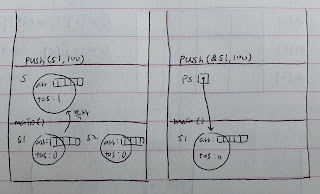 push(s1, 100)
S
arr:
tos: 1
복사
main()
S1
arr:
tos: 0
S2
arr:
tos: 0
push(&s1, 100)
ps
main()
S1
arr:
tos: 0